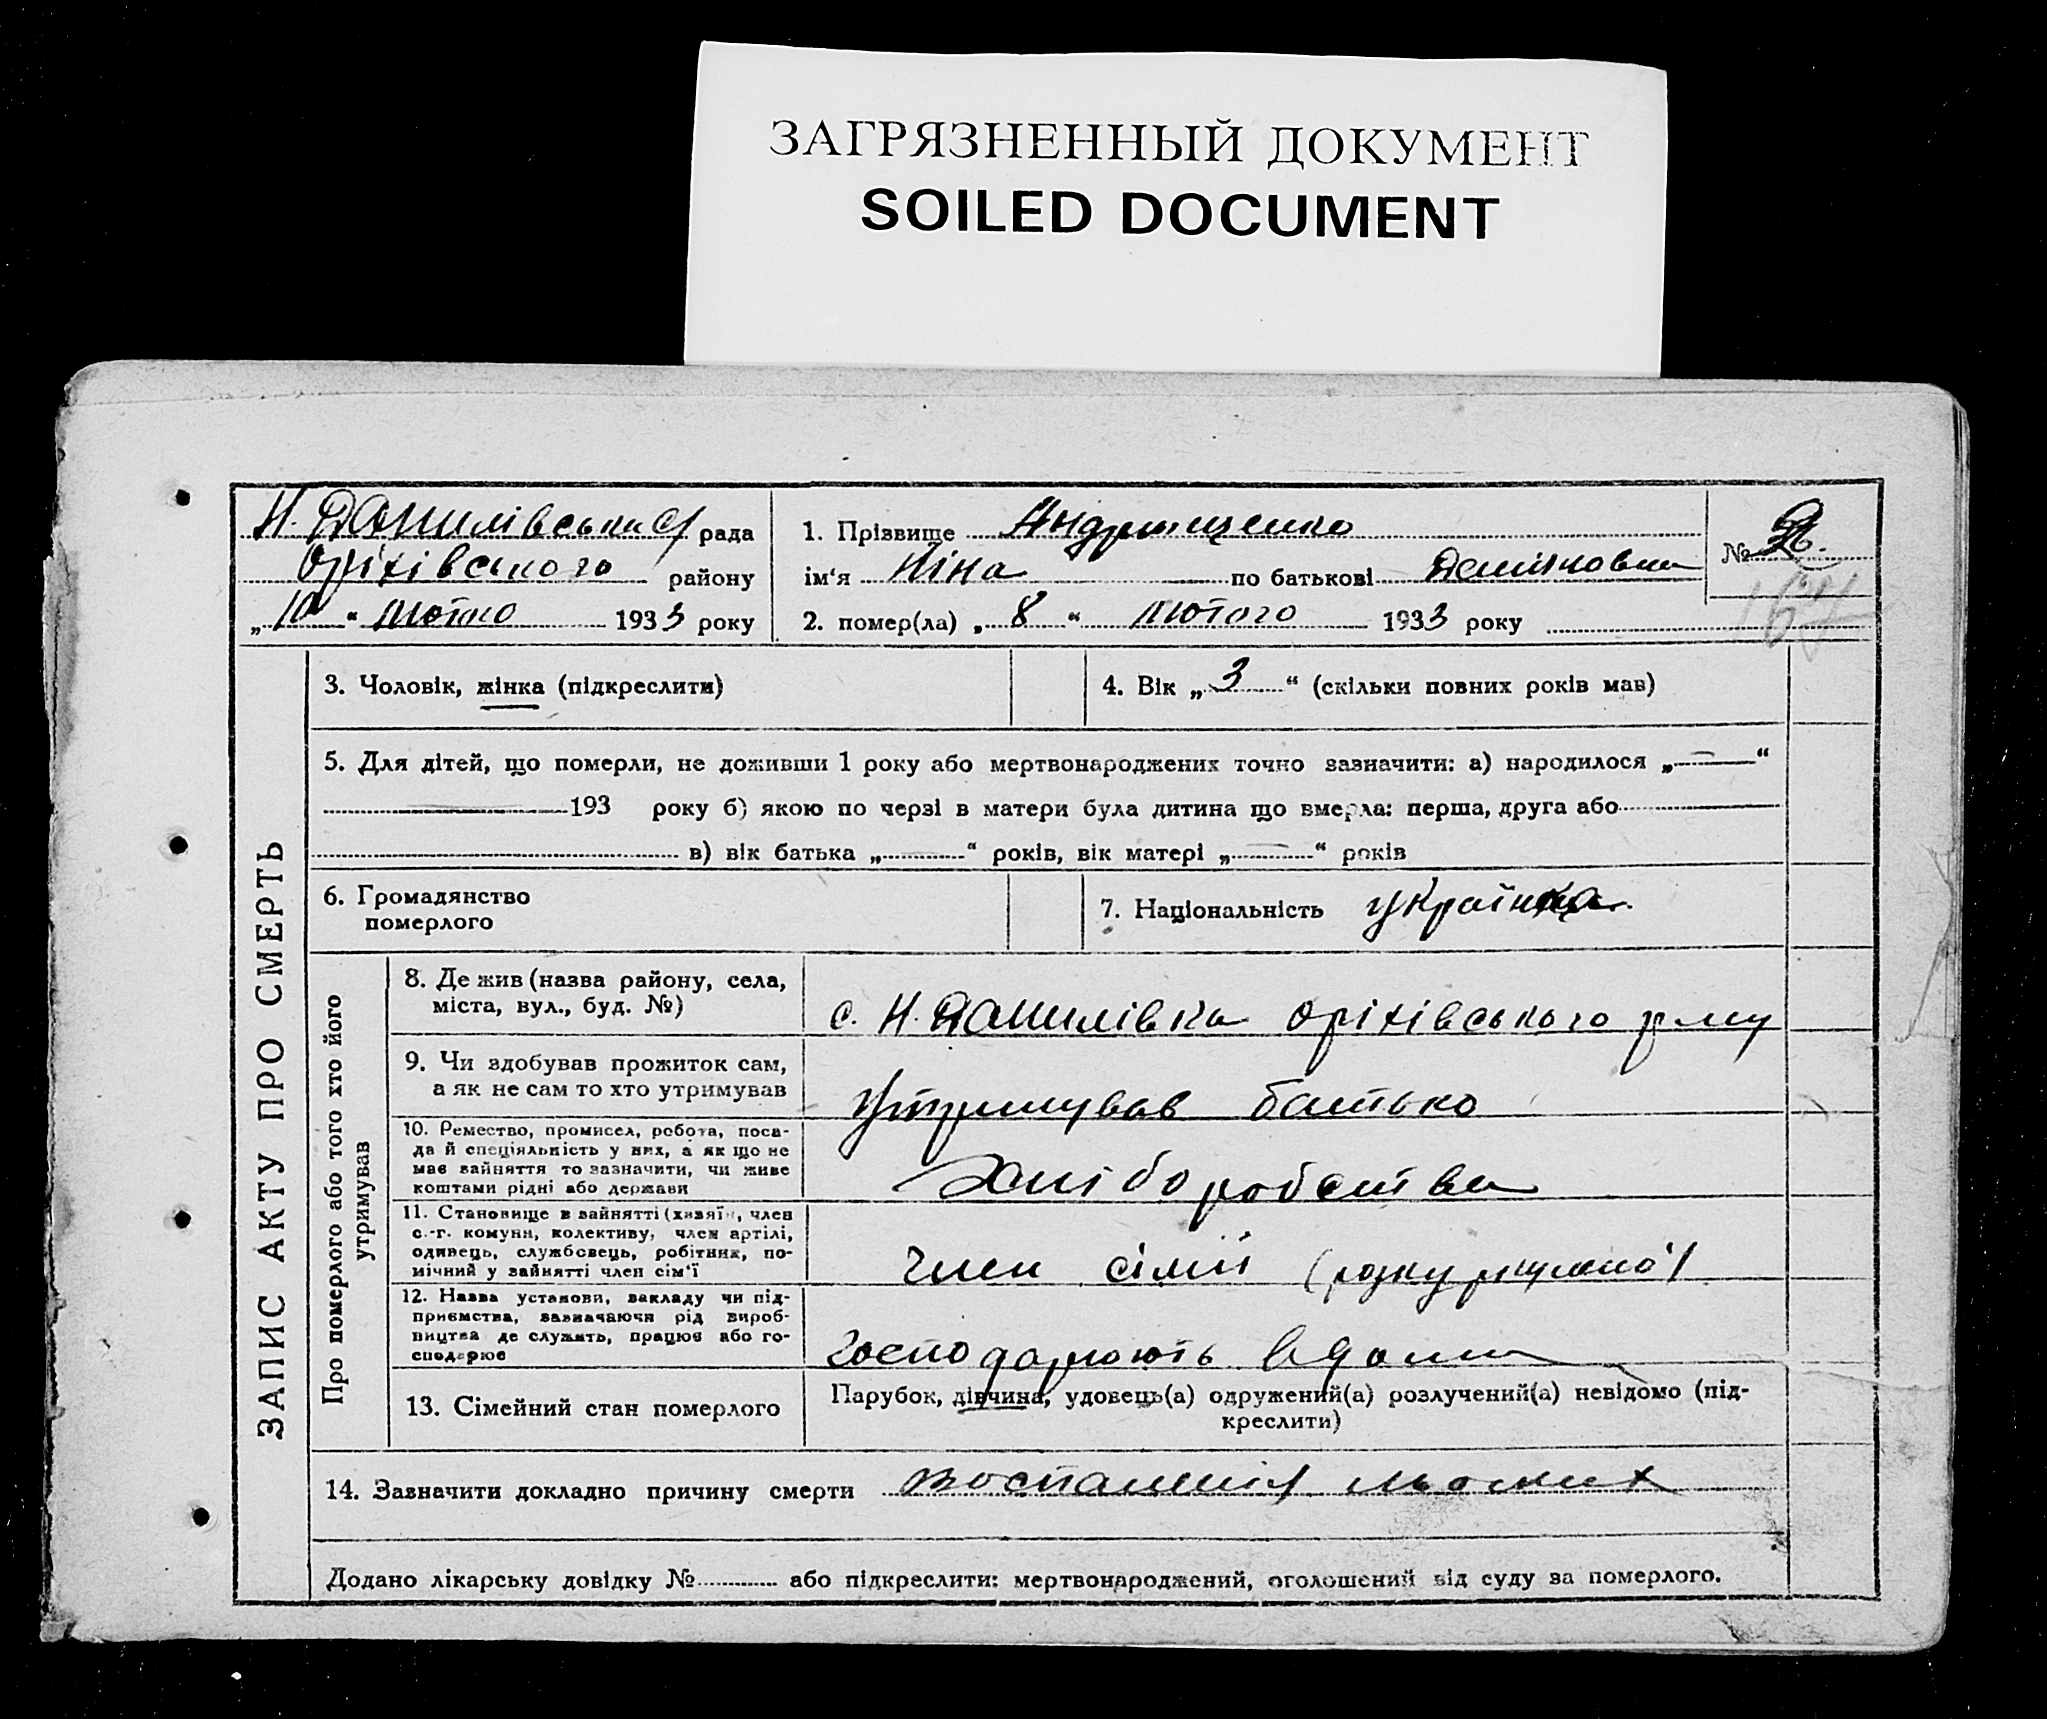 ЗАГРЯЗНЕННЫЙ ДОКУМЕНТ
SOILED DOCUMENT
Н. Данилівська с/рада
Оріхівського району
„10“ лютого 1933 року
1. Прізвище Андрющенко
ім‘я Ніна по батькові
2. помер(ла) „8“ лютого 1933 року
№
ЗАПИС АКТУ ПРО СМЕРТЬ
3. Чоловік, жінка (підкреслити)
4. Вік „3“ (скільки повних років мав)
5. Для дітей, що померли, не доживши 1 року або мертвонароджених точно зазначити: а) народилося „—“
193 року б) якою по черзі в матери була дитина що вмерла: перша, друга або
в) вік батька „—“ років, вік матері „—“ років
6. Громадянство
померлого
7. Національність українка
Про померлого або того хто його
утримував
8. Де жив (назва району, села,
міста, вул., буд. №)
с. Н. Данилівка Оріхівського р-ну
9. Чи здобував прожиток сам,
а як не сам то хто утримував
Утримував батько
10. Ремество, промисел, робота, поса-
да й спеціяльність у них, а як що не
має зайняття то зазначити, чи живе
коштами рідні або держави
Хліборобство
11. Становище в зайнятті (хазяїн, член
с.-г. комуни, колективу, член артілі,
одинець, службовець, робітник, по-
мічний у зайнятті член сім‘ї
Член сімії
12. Назва установи, закладу чи під-
приємства, зазначаючи рід вироб-
ництва де служить, працює або го-
сподарює
господарюють вдома
13. Сімейний стан померлого
Парубок, дівчина, удовець(а) одружений(а) розлучений(а) невідомо (під-
креслити)
14. Зазначити докладно причину смерти воспаленія
Додано лікарську довідку № або підкреслити: мертвонароджений, оголошений від суду за померлого.